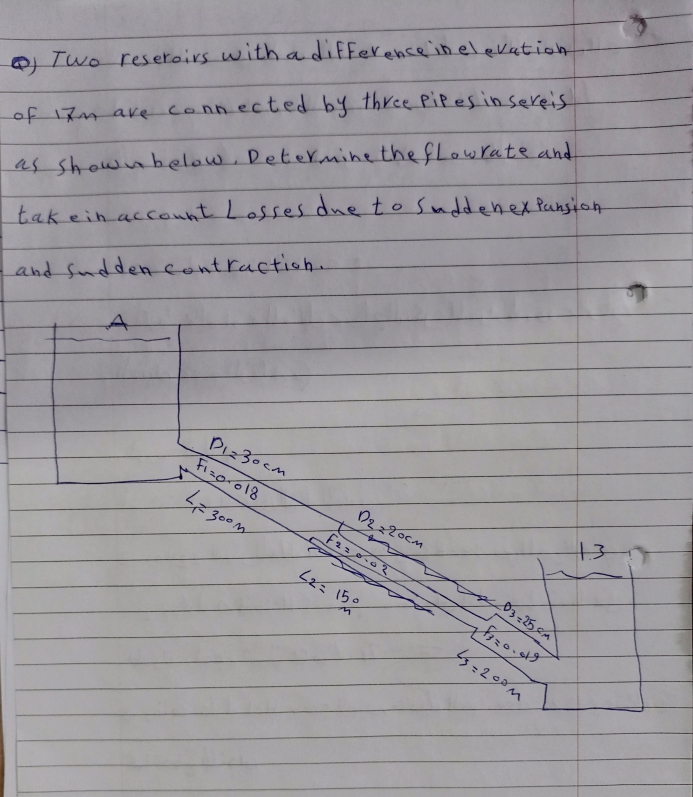 Q) Two reseroirs with a difference in elevation
of 17m are connected by three pipes in sereis
as shown below. Determine the flowrate and
take in account Losses due to sudden expansion
and sudden contraction.
A
D1=30cm
F1=0.018
L1=300m
D2=20cm
F2=0.02
L2=150m
13
D3=25cm
F3=0.019
L3=200m